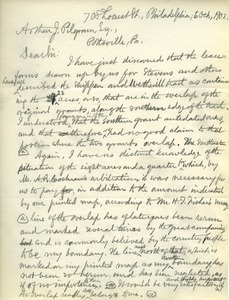 705 Locust St, Philadelphia, 6 Oct, 1902.
Arthur J. Pilgram, Esq.,
Pottsville, Pa.
Dear Sir:
I have just discovered that the lease
forms drawn up by us for Stevens and others
described the Shippen and Wetherill as contain-
ing the acres, and that in the overlap of the
original grants, along the southern edge of the tract.
I understood that the southern grant antedated ours, and
and that therefore, I had no good claim to that
portion where the two grants overlap. The
Again, I have no distinct knowledge of the
situation of the eight acres and a quarter which, by
Mr. arbitration, it was necessary for
us to pay for, in addition to the amount indicated
by our printed map, according to Mr. H. I. Fisher's
A line of the overlap has of late years been rerun
and marked several times by the
and is commonly believed by the country people
to be my boundary. The of that which is
marked on my printed map as my boundary has
not been so rerun, and has been neglected as
if of no importance. It would be very interesting if
the overlap really belongs to me.